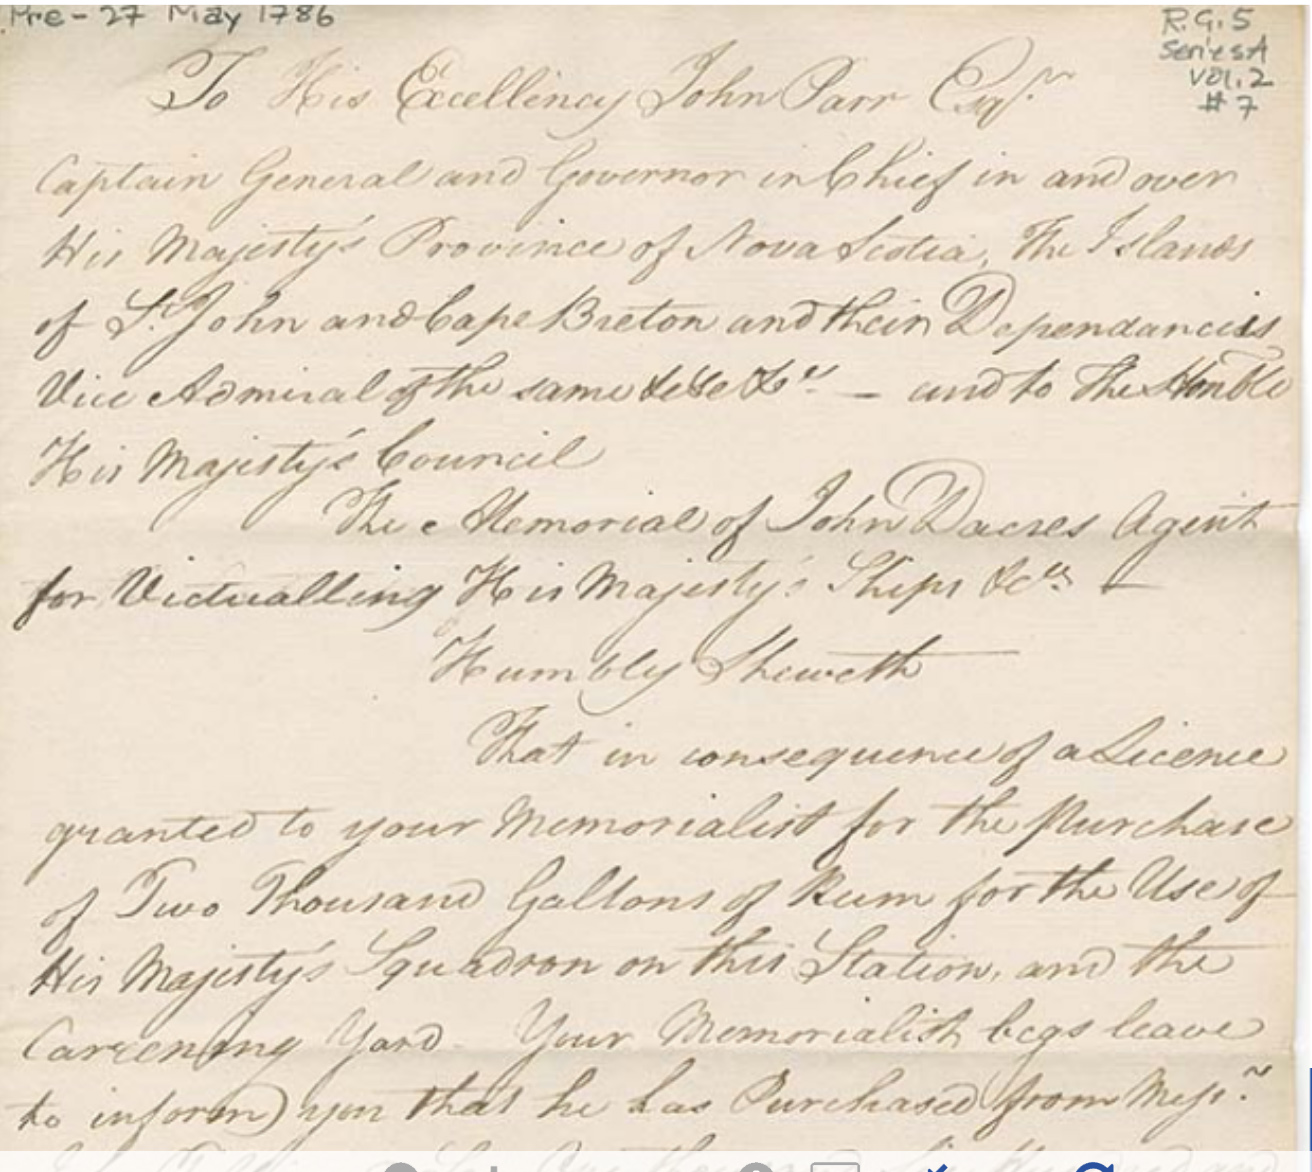 Pre - 27 May 1786
R.G. 5
Series A
Vol. 2
# 7
To His Excellency John Parr Esqr.
Captain General and Governor in Chief in and over
His Majesty's Province of Nova Scotia, The Islands
of St. John and Cape Breton and their Dependancies
Vice Admiral of the same &c &c &ca. — and to The Honble
His Majesty's Council
The Memorial of John Dacres Agent
for Victualling His Majesty's Ships &ca. —
Humbly Sheweth
That in consequence of a Licence
granted to your Memorialist for the Purchase
of Two Thousand Gallons of Rum for the Use of
His Majesty's Squadron on this Station, and the
Carreening Yard. Your Memorialist begs leave
to inform you that he has Purchased from Messrs.